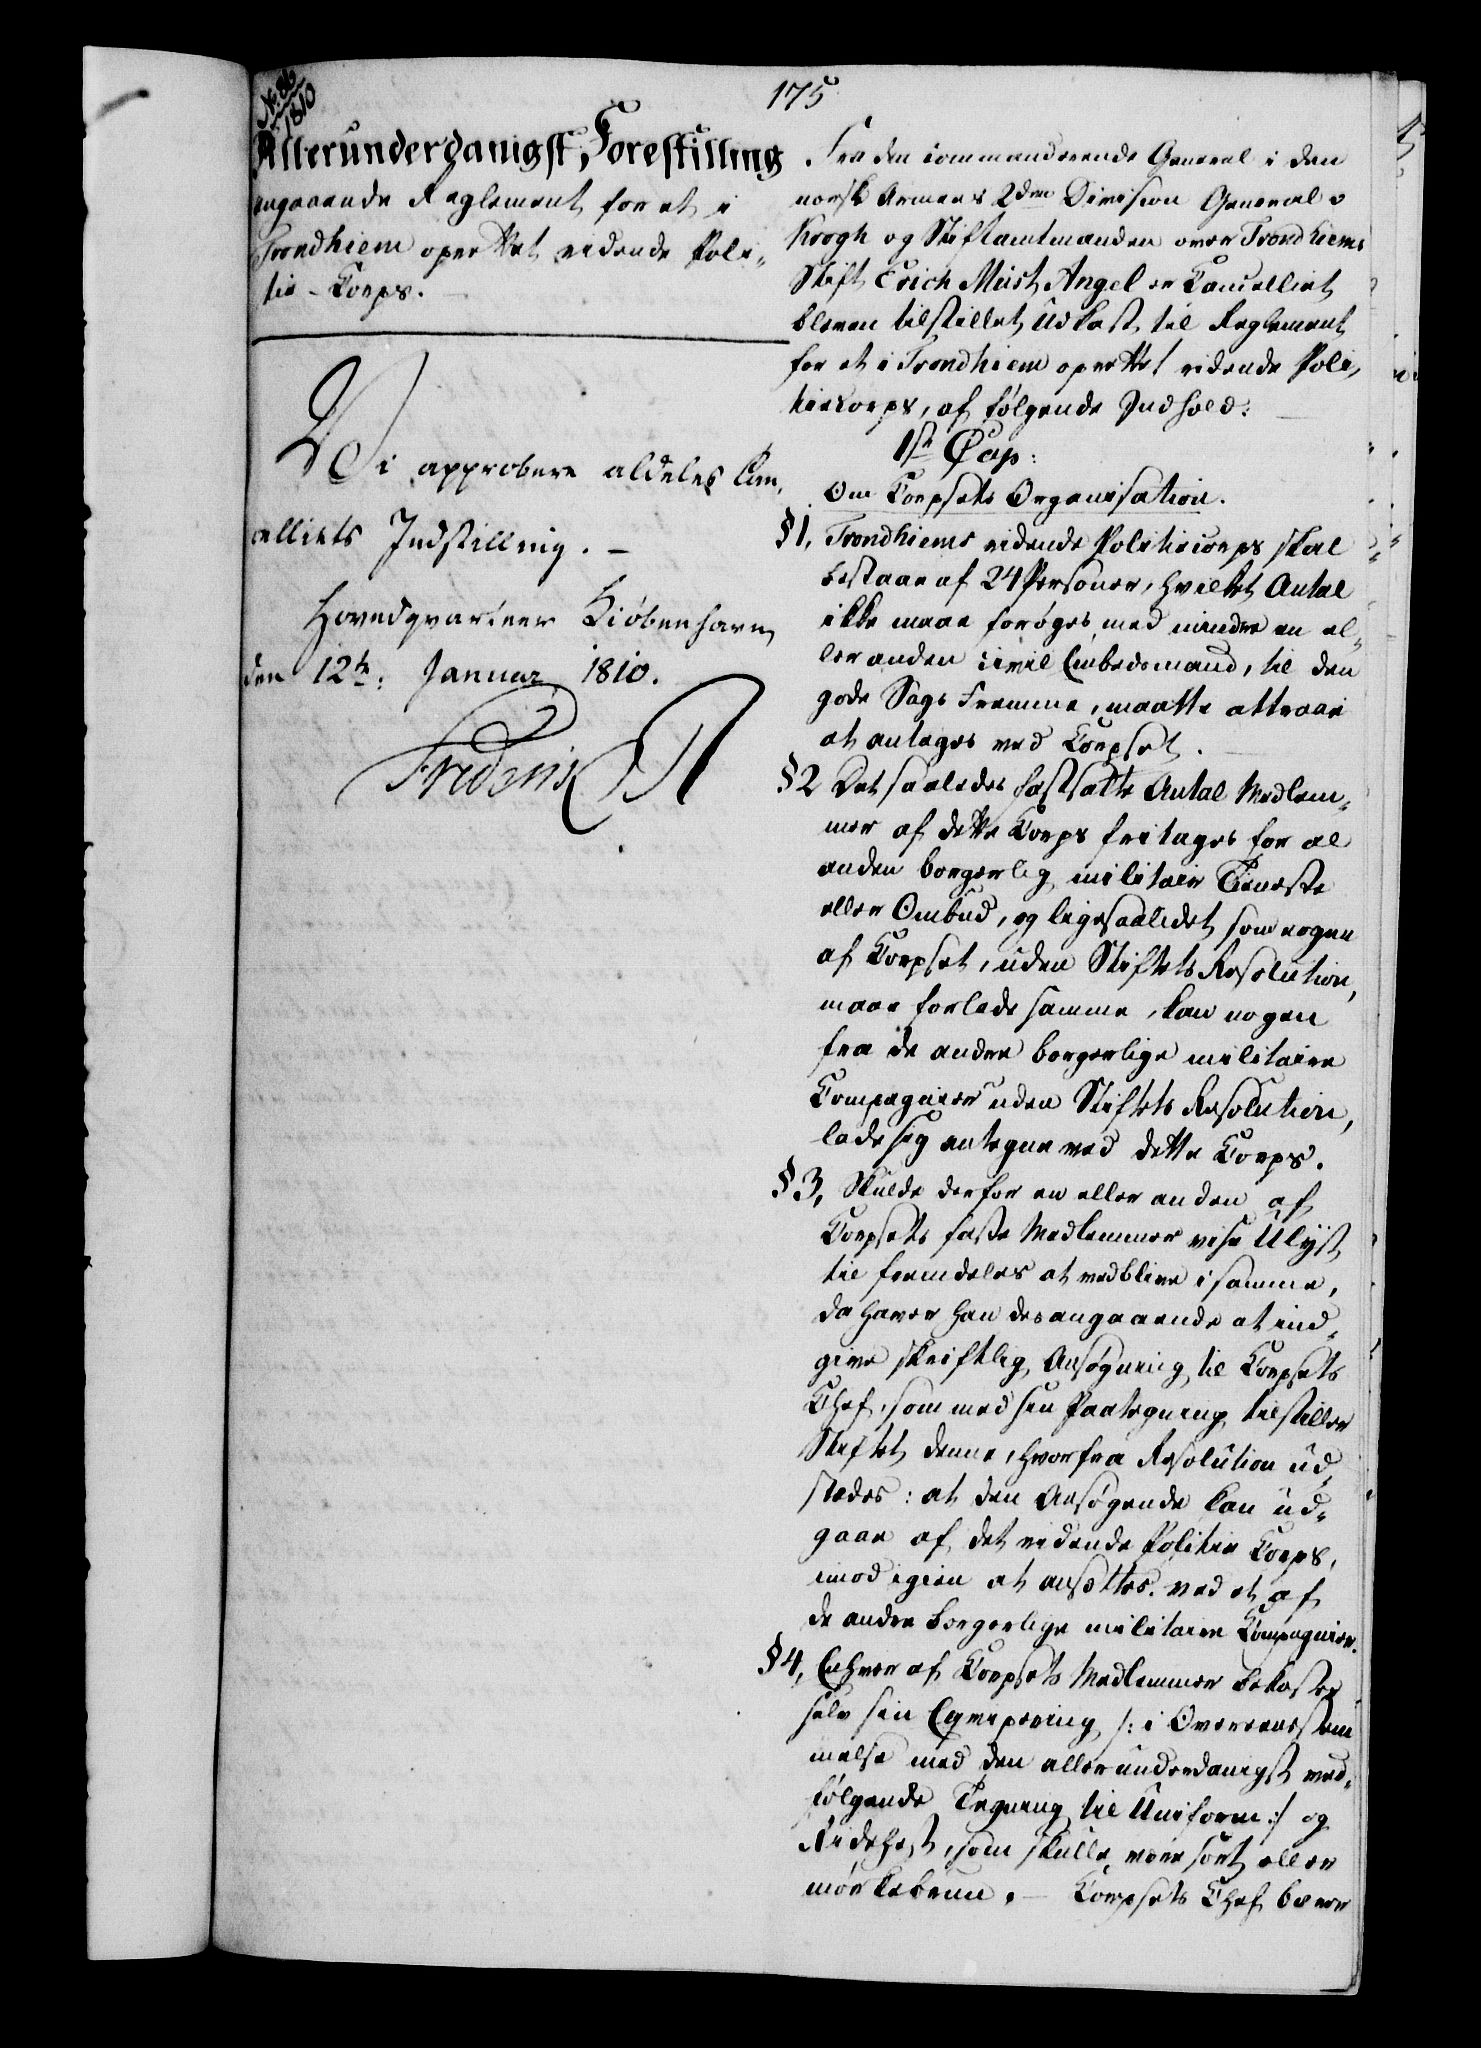 No. 86
1810
175
Allerunderdanigst Forestilling
angaaende Reglement for et i
Trondhiem oprettet ridende Poli-
tie-Corps.
Vi approbere aldeles Can-
celliets Indstilling.
Hovedqvarteer Kiøbenhavn
den 12te Januar 1810.
Frederik R
Fra den commanderende General i den
norske Armees 2den Division General v
Krogh og Stiftamtmanden over Trondhiems
Stift Erich Must Angel er Cancelliet
bleven tilstillet Udkast til Reglement
for et i Trondhiem oprettet ridende Poli-
tiecorps, af følgende Indhold:
1ste Cap:
Om Corpsets Organisation.
§1, Trondhiems ridende Politiecorps skal
bestaae af 24 Personer, hvilket Antal
ikke maae forøges med mindre en el-
ler anden civil Embedsmand, til den
gode Sags Fremme, maatte attraae
at antages ved Corpset.
§2 Det saaledes fastsatte Antal Medlem-
mer af dette Corps fritages for al
anden borgerlig militair Tieneste
eller Ombud, og ligesaalidet som nogen
af Corpset, uden Stiftets Resolution,
maae forlade samme, kan nogen
fra de andre borgerlige militaire
Compagnier uden Stiftets Resolution,
lade sig antegne ved dette Corps.
§3, Skulde derfor en eller anden af
Corpsets faste Medlemmer vise Ulyst
til fremdeles at vedblive i samme,
da haver han desangaaende at ind-
give skriftlig Ansøgning til Corpsets
Chef, som med sin Paategning tilstiller
Stiftet denne, hvorfra Resolution ud-
stædes: at den Ansøgende kan ud-
gaae af det ridende Politie Corps,
imod igien at ansættes ved et af
de andre borgerlige militaire Compagnier.
§4, Enhver af Corpsets Medlemmer bekoster
selv sin Eqvipering /: i Overeensstem
melse med den allerunderdanigst med-
følgende Tegning til Uniform :/ og
Ridehest, som skulle være sort eller
mørkebruun. — Corpsets Chef bærer